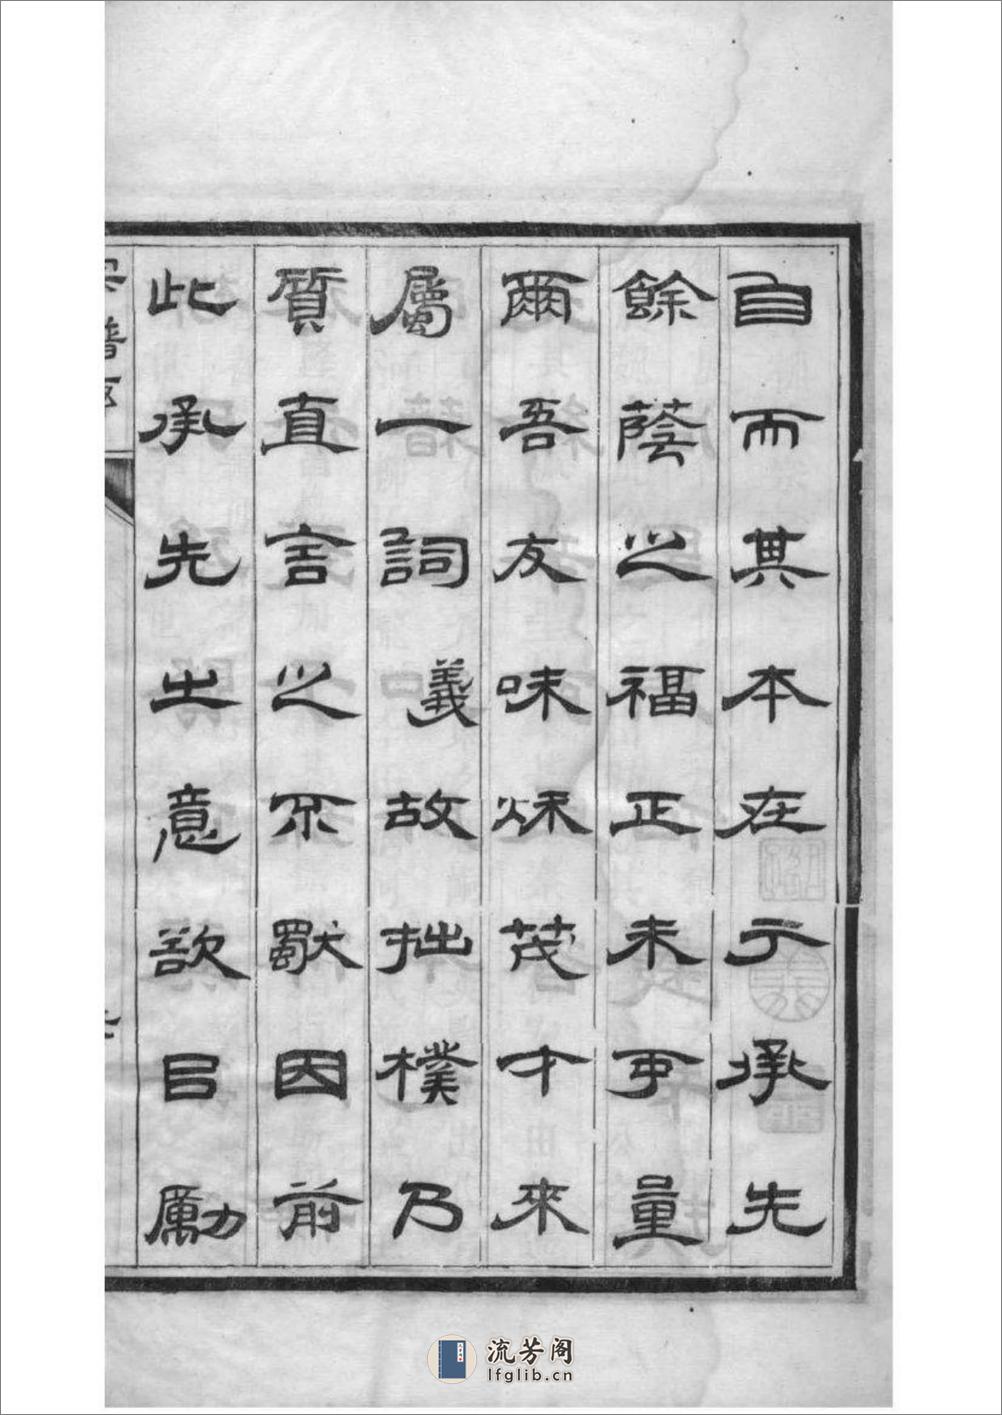 自而其本在于承先
餘蔭之福正未可量
爾吾友味秌茂才來
屬一詞義故拙樸乃
質直言之不猒因前
此承先之意欲㠯勵
流芳阁
lfglib.cn